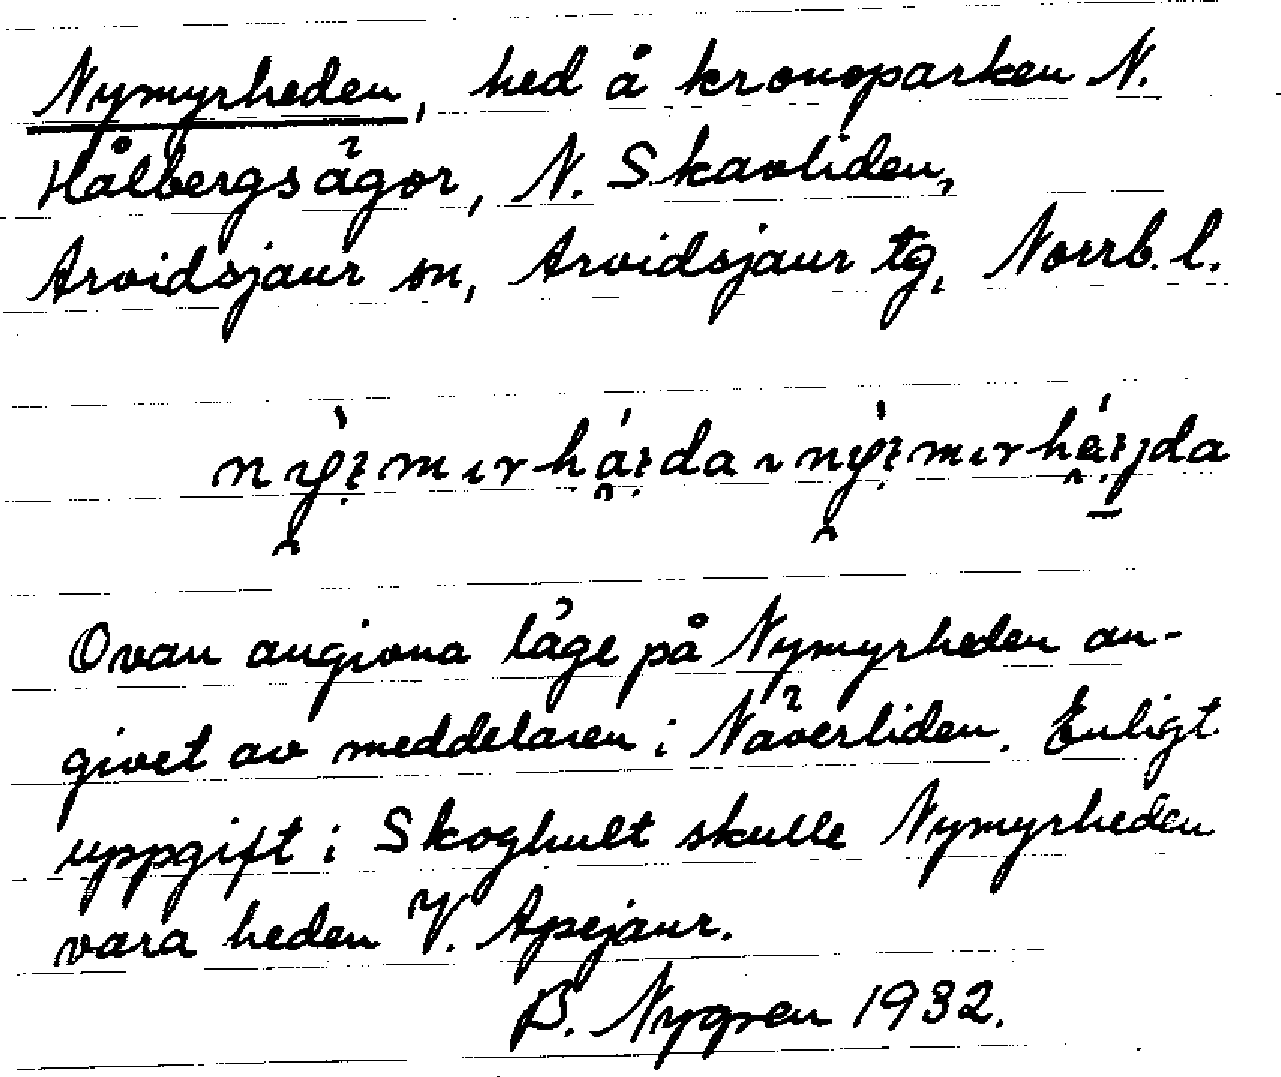 Nymyrheden, hed å kronoparken N.
Hålbergsägor, N. Skavliden,
Arvidsjaur sn, Arvidsjaur tg, Norrb. l.
Ovan angivna läge på Nymyrheden an-
givet av meddelaren i Näverliden. Enligt
uppgift i Skoghult skulle Nymyrheden
vara heden V. Apejaur.
B. Nygren 1932.